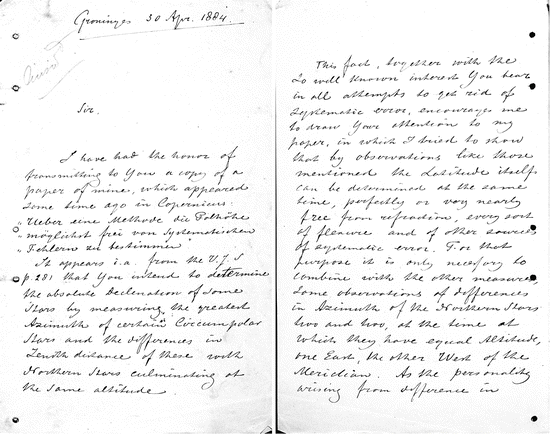 Groningen 30 Apr. 1884.
Sir.
I have had the honor of
transmitting to You a copy of a
paper of mine, which appeared
some time ago in Copernicus:
"Ueber eine Methode die Polhöhe
"möglichst frei von Systematischen
"Fehlern zu bestimmen"
It appears i.a. from the V.J.S
p. 281 that You intend to determine
the absolute Declination of some
Stars by measuring the greatest
Azimuth of certain Circumpolar
Stars and the differences in
Zenith distance of these with
Northern Stars culminating at
the same altitude.
This fact, together with the
so well known interest You bear
in all attempts to get rid of
systematic error, encourages me
to draw Your attention to my
paper, in which I tried to show
that by observations like those
mentioned the Latitude itself
can be determined at the same
time, perfectly or very nearly
free from refraction, every sort
of flexure and of other sources
of systematic error. For that
purpose it is only necessary to
combine with the other measures
some observations of differences
in Azimuth of the Northern Stars
two and two, at the time at
which they have equal Altitude,
one East, the other West of the
Meridian. As the personality
arising from difference in